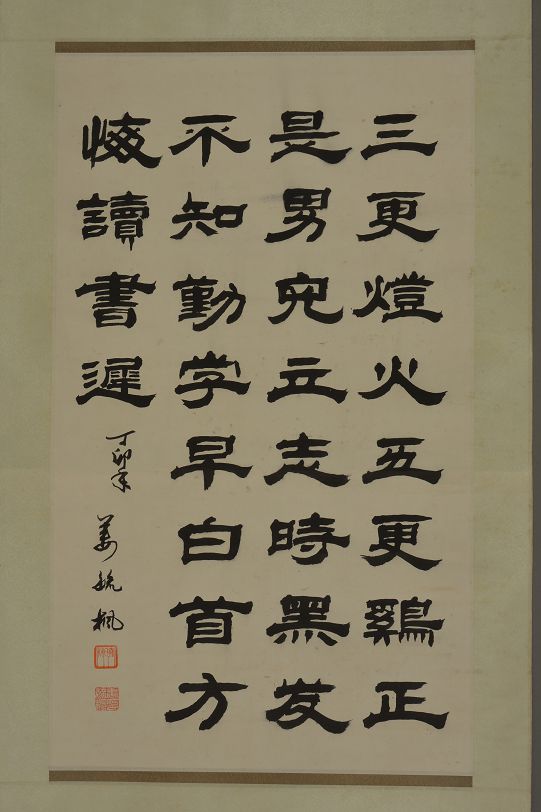 三更燈火五更鷄正
是男兒立志時黑发
不知勤学早白首方
悔讀書遲
丁卯年 姜毓枫